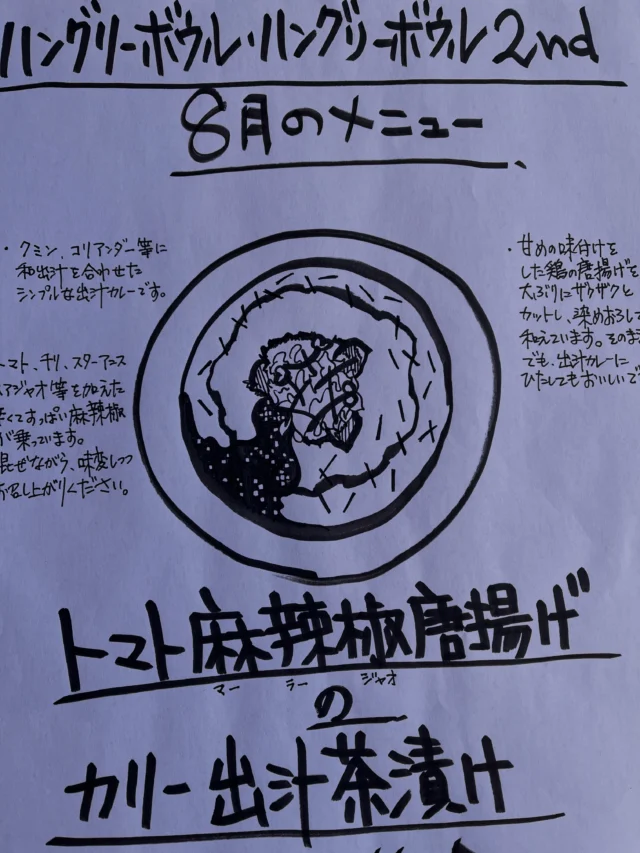 ハングリーボウル・ハングリーボウル2nd
8月のメニュー
・クミン、コリアンダー等に
和出汁を合わせた
シンプルな出汁カレーです。
トマト、チリ、スターアニス
ホアジャオ等を加えた
辛くてすっぱい麻辣椒
が乗っています。
混ぜながら、味変しつつ
お召し上がりください。
・甘めの味付けを
した鶏の唐揚げを
大ぶりにザクザクと
カットし、染めおろしで
和えています。そのまま
でも、出汁カレーに
ひたしてもおいしいで
トマト麻辣椒唐揚げ
マー ラー ジャオ
の
カリー出汁茶漬け